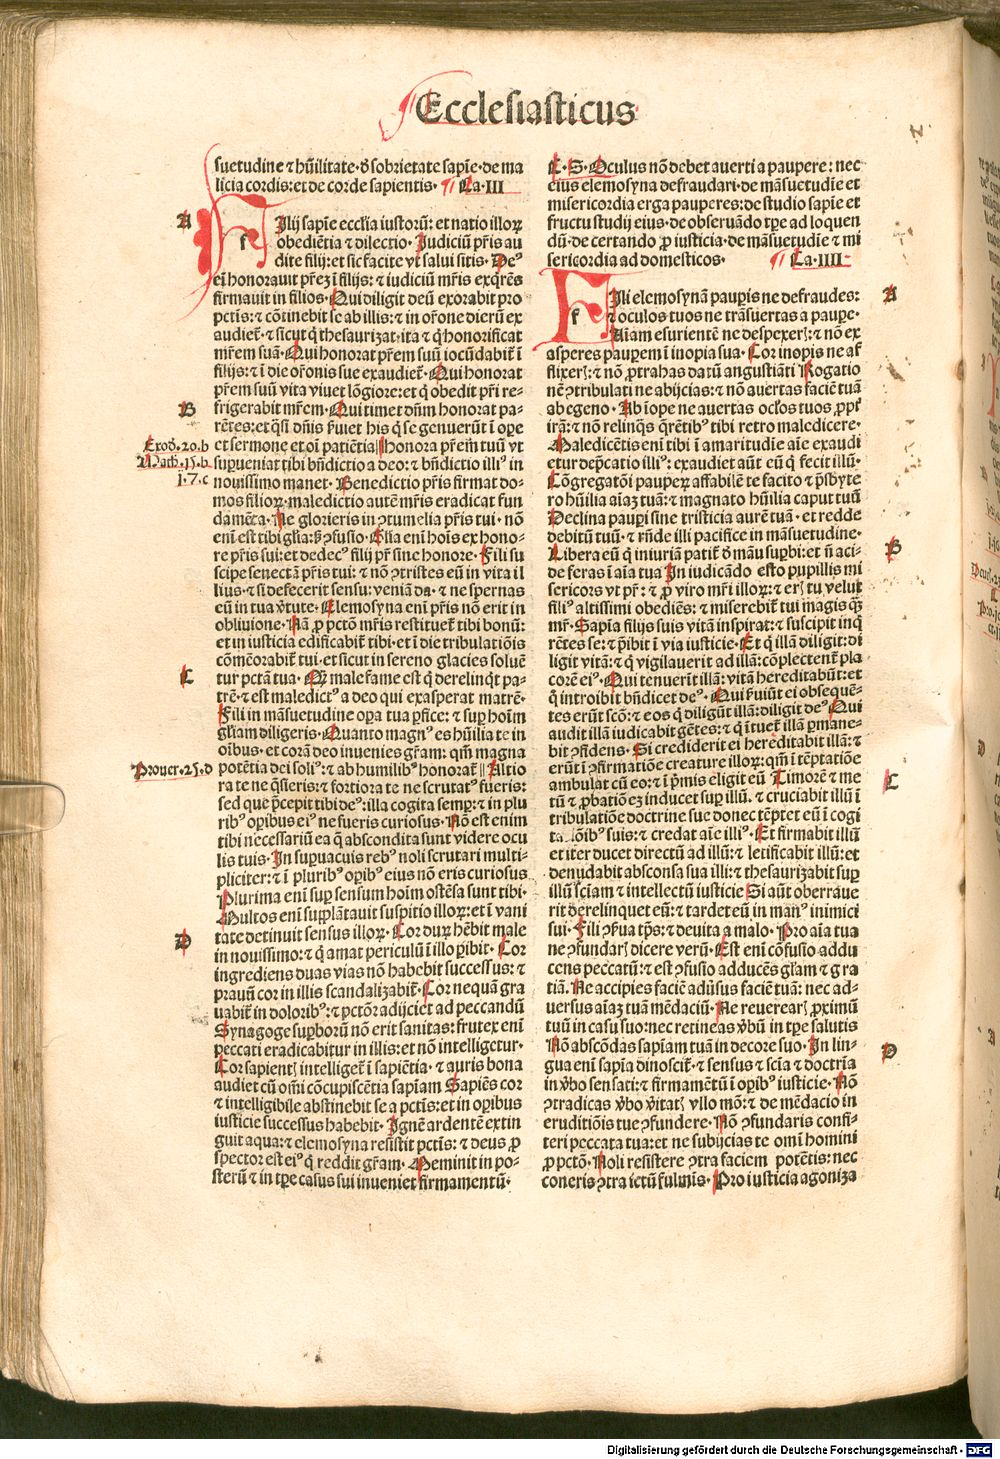 Ecclesiasticus
suetudine ⁊ hũilitate· ð sobrietate sapĩe· de ma
licia cordis: et de corde sapientis· Ca·III
A
Filij sapĩe ecclĩa iustorũ: et natio illoꝝ
obediẽtia ⁊ dilectio· Judiciũ pr̃is au
dite filij: et sic facite vt salui sitis· Deꝰ
firmauit in filios· Qui diligit deũ exorabit pro
pctis: ⁊ cõtinebit se ab illis: ⁊ in or̃one dierũ ex
audiet̃· ⁊ sicut q̃ thesaurizat· ita ⁊ q̃ honorificat
mr̃em suã· Qui honorat pr̃em suũ iocũdabit̃ ĩ
filijs: ⁊ ĩ die or̃onis sue exaudiet̃· Qui honorat
pr̃em suũ vita viuet lõgiore: et q̃ obedit pr̃i re-
B
frigerabit mr̃em· Qui timet dñm honorat pa-
rẽtes: et q̃si dñis ꝼuiet his q̃ se genuerũt ĩ oꝑe
Exod̃·20·b
Math·15·b
j·7·c
et sermone et oĩ patiẽtia‖ Honora pr̃em tuũ vt
suꝑueniat tibi bñdictio a deo: ⁊ bñdictio illiꝰ in
nouissimo manet· Benedictio pr̃is firmat do-
mos filioꝝ· maledictio autẽ mr̃is eradicat fun
damẽta· Ne glorieris in ꝯtumelia pr̃is tui· nõ
enĩ est tibi gl̃ia: sꝫ ꝯfusio· Gl̃ia enĩ hoĩs ex hono-
re pr̃is sui: et dedecꝰ filij pr̃ sine honore· Fili su
scipe senectã pr̃is tui: ⁊ nõ ꝯtristes eũ in vita il
lius· ⁊ si defecerit sensu: veniã da· ⁊ ne spernas
eũ in tua v̓tute· Elemosyna enĩ pr̃is nõ erit in
obliuione· Nã ꝓ pctõ mr̃is restituet̃ tibi bonũ:
et in iusticia edificabit̃ tibi· et ĩ die tribulatiõis
cõmẽorabit̃ tui· et sicut in sereno glacies soluẽ
C
tur pctã tua· Q̃ȝ male fame est q̃ derelinq̃t pa-
trẽ· ⁊ est maledictꝰ a deo qui exasperat matrẽ·
Fili in mãsuetudine oꝑa tua ꝑfice: ⁊ suꝑ hoĩm
gl̃iam diligeris· Quanto magnꝰ es hũilia te in
oĩbus· et corã deo inuenies gr̃am: qm̃ magna
Prouer·25·d
potẽtia dei soliꝰ: ⁊ ab humilibꝰ honorat̃‖ Altio
ra te ne q̃sieris: ⁊ fortiora te ne scrutatꝰ fueris:
sed que p̃cepit tibi deꝰ: illa cogita semꝑ: ⁊ in plu
ribꝰ oꝑibus eiꝰ ne fueris curiosus· Nõ est enim
tibi necessariũ ea q̃ abscondita sunt videre ocu
lis tuis· In suꝑuacuis rebꝰ noli scrutari multi-
pliciter: ⁊ ĩ pluribꝰ oꝑibꝰ eius nõ eris curiosus
Plurima enĩ suꝑ sensum hoĩm ostẽsa sunt tibi·
Multos enĩ supplãtauit suspitio illoꝝ: et ĩ vani
D
tate detinuit sensus illoꝝ· Cor duꝝ hẽbit male
in nouissimo: ⁊ q̃ amat periculũ ĩ illo ꝑibit· Cor
ingrediens duas vias nõ habebit successus: ⁊
prauũ cor in illis scandalizabit̃· Cor nequã gra
uabit̃ in doloribꝰ: ⁊ pctõr adijciet ad peccandũ
Synagoge suꝑborũ nõ erit sanitas: frutex enĩ
peccati eradicabitur in illis: et nõ intelligetur·
audiet cũ om̃i cõcupiscẽtia sapĩam Sapiẽs cor
⁊ intelligibile abstinebit se a pctĩs: et in oꝑibus
iusticie successus habebit· Ignẽ ardentẽ extin
guit aqua: ⁊ elemosyna resistit pctĩs: ⁊ deus ꝓ
spector est eiꝰ q̃ reddit gr̃am· Meminit in po-
sterũ ⁊ in tꝑe casus sui inueniet firmamentũ·
C· S· Oculus nõ debet auerti a paupere: nec
eius elemosyna defraudari· de mãsuetudĩe et
misericordia erga pauperes: de studio sapĩe et
fructu studij eius· de obseruãdo tꝑe ad loquen
dũ· de certando ꝓ iusticia· de mãsuetudĩe ⁊ mi
sericordia ad domesticos· Ca·IIII
A
Fili elemosynã pauꝑis ne defraudes:
⁊ oculos tuos ne trãsuertas a pauꝑe·
Aĩam esurientẽ ne despexerꝭ: ⁊ nõ ex
asperes pauꝑem ĩ inopia sua· Cor inopis ne af
flixerꝭ: ⁊ nõ ꝓtrahas datũ angustiãti Rogatio
nẽ ꝯtribulati ne abijcias: ⁊ nõ auertas faciẽ tuã
ab egeno· Ab ĩope ne auertas ocl̃os tuos ꝓpt̃
irã: ⁊ nõ relinq̃s q̃rẽtibꝰ tibi retro maledicere·
Maledicẽtis enĩ tibi ĩ amaritudĩe aĩe exaudi
etur dep̃catio illiꝰ: exaudiet aũt eũ q̃ fecit illũ·
Cõgregatõi pauꝑeꝝ affabilẽ te facito ⁊ p̃sbyte
ro hũilia aĩaȝ tuã: ⁊ magnato hũilia caput tuũ
Declina pauꝑi sine tristicia aurẽ tuã· et redde
debitũ tuũ· ⁊ rñde illi pacifice in mãsuetudine·
B
Libera eũ q̃ iniuriã patit̃ ð mãu suꝑbi: et ñ aci-
de feras ĩ aĩa tua In iudicãdo esto pupillis mi
sericors vt pr̃: ⁊ ꝓ viro mr̃i illoꝝ: ⁊ erꝭ tu velut
filiꝰ altissimi obediẽs: ⁊ miserebit̃ tui magis q̃ȝ
mr̃· Sapĩa filijs suis vitã inspirat: ⁊ suscipit inq̃
rẽtes se: ⁊ p̃ibit ĩ via iusticie· Et q̃ illã diligit: di
ligit vitã: ⁊ q̃ vigilauerit ad illã: cõplectent̃ pla
corẽ eiꝰ· Qui tenuerĩt illã: vitã hereditabũt: et
q̃ introibit bñdicet deꝰ· Qui ꝼuiũt ei obseque-
tes erũt scõ: ⁊ eos q̃ diligũt illã: diligit deꝰ Qui
audit illã iudicabit gẽtes: ⁊ q̃ ĩtuet̃ illã ꝑmane-
bit ꝯfidens· Si crediderit ei hereditabit illã: ⁊
erũt ĩ ꝯfirmatiõe creature illoꝝ: qm̃ ĩ tẽptatiõe
C
ambulat cũ eo: ⁊ ĩ p̃mis eligit eũ Timorẽ ⁊ me
tũ ⁊ ꝓbatiõeȝ inducet suꝑ illũ· ⁊ cruciabit illũ ĩ
tribulatiõe doctrine sue donec tẽptet eũ ĩ cogi
et iter ducet directũ ad illũ: ⁊ letificabit illũ: et
denudabit absconsa sua illi: ⁊ thesaurizabit suꝑ
illũ sc̃iam ⁊ intellectũ iusticie Si aũt oberraue
rit derelinquet eũ: ⁊ tardet eũ in manꝰ inimici
sui· Fili ꝯẜua tp̃s: ⁊ deuita a malo· Pro aĩa tua
ne ꝯfundarꝭ dicere verũ· Est enĩ cõfusio addu
cens peccatũ: ⁊ est ꝯfusio adducẽs gl̃iam ⁊ gra
tiã· Ne accipies faciẽ adũsus faciẽ tuã: nec ad-
uersus aĩaȝ tuã mẽdaciũ· Ne reuerearꝭ ꝓximũ
tuũ in casu suo: nec retineas v̓bũ in tꝑe salutis
D
Nõ abscõdas sapĩam tuã in decore suo· In lin-
gua enĩ sapĩa dinoscit̃· ⁊ sensus ⁊ scĩa ⁊ doctrĩa
in v̓bo sensati: ⁊ firmamẽtũ ĩ oꝑibꝰ iusticie· Nõ
ꝯtradicas v̓bo v̓itatꝭ vllo mõ: ⁊ de mẽdacio in
eruditiõis tue ꝯfundere· Nõ ꝯfundaris confi-
teri peccata tua: et ne subijcias te om̃i homini
ꝓ pctõ· Noli resistere ꝯtra faciem potẽtis: nec
coneris ꝯtra ictũ fulmĩs· Pro iusticia agoniza
Digitalisierung gefördert durch die Deutsche Forschungsgemeinschaft · DFG